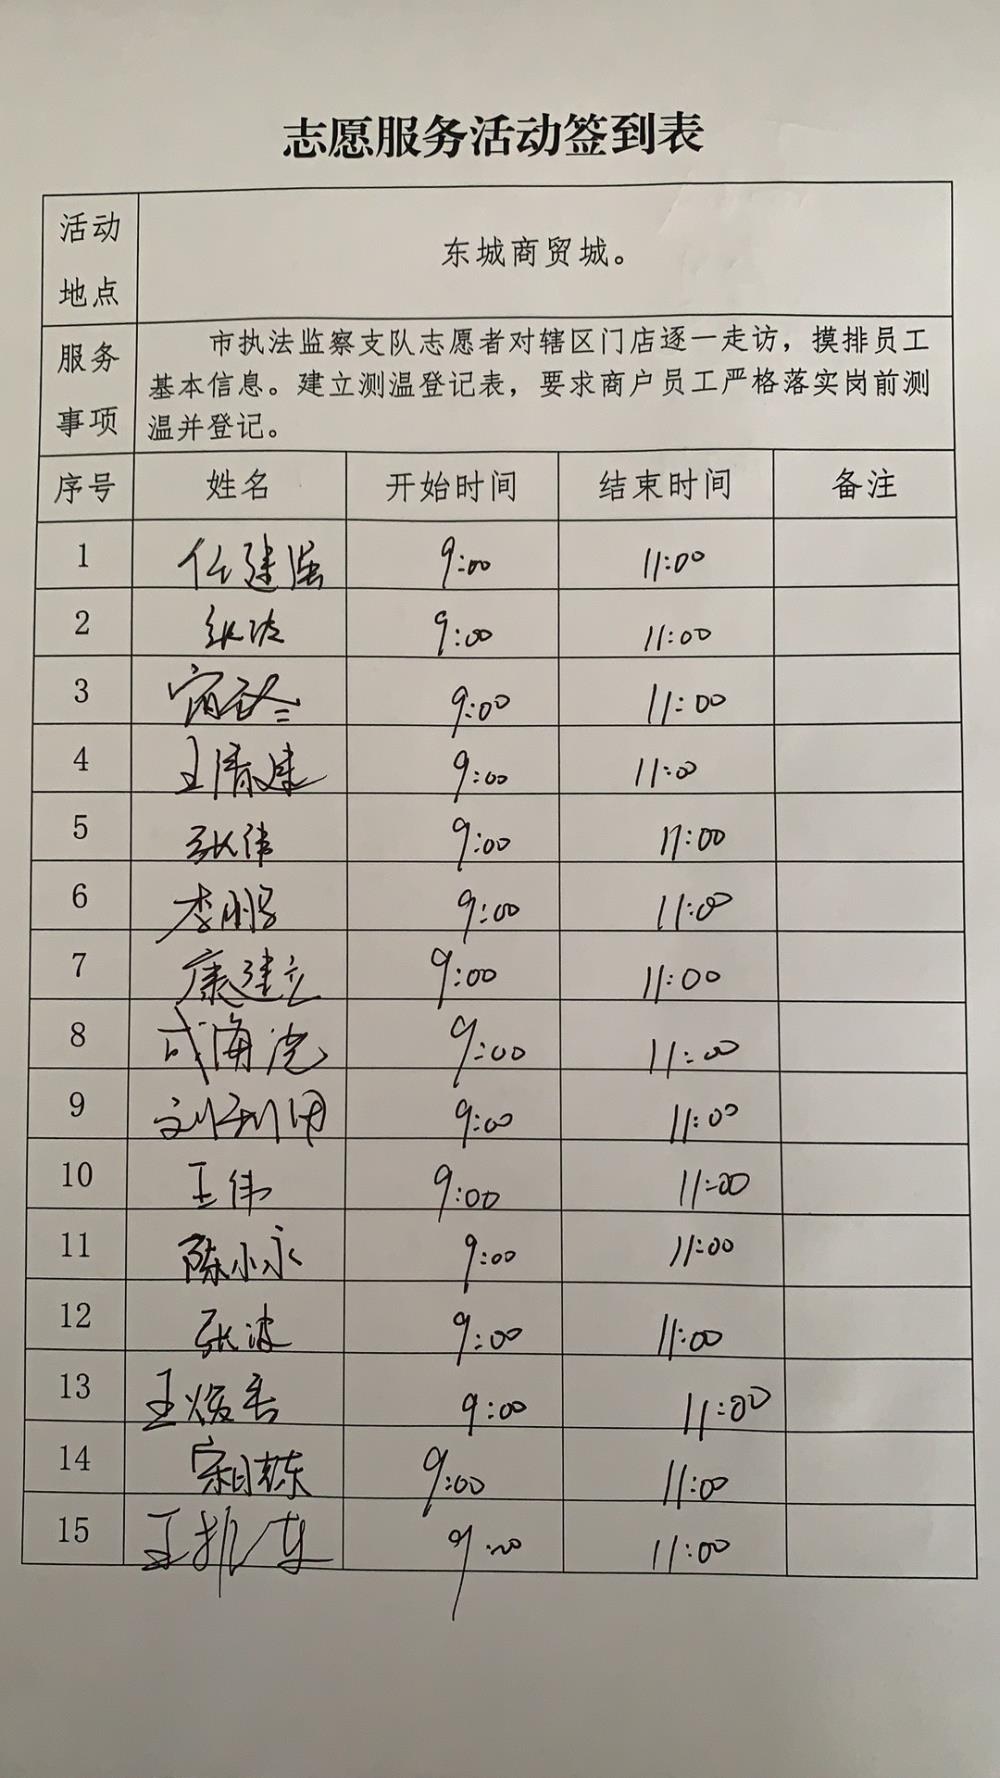 志愿服务活动签到表
活动地点 东城商贸城。
服务事项 市执法监察支队志愿者对辖区门店逐一走访，摸排员工
基本信息。建立测温登记表，要求商户员工严格落实岗前测
温并登记。
序号 姓名 开始时间 结束时间 备注
1 任建强 9:00 11:00
2 9:00 11:00
3 9:00 11:00
4 王清建 9:00 11:00
5 张伟 9:00 11:00
6 李鹏 9:00 11:00
7 康建立 9:00 11:00
8 9:00 11:00
9 9:00 11:00
10 王伟 9:00 11:00
11 陈小永 9:00 11:00
12 张波 9:00 11:00
13 9:00 11:00
14 9:00 11:00
15 9:00 11:00